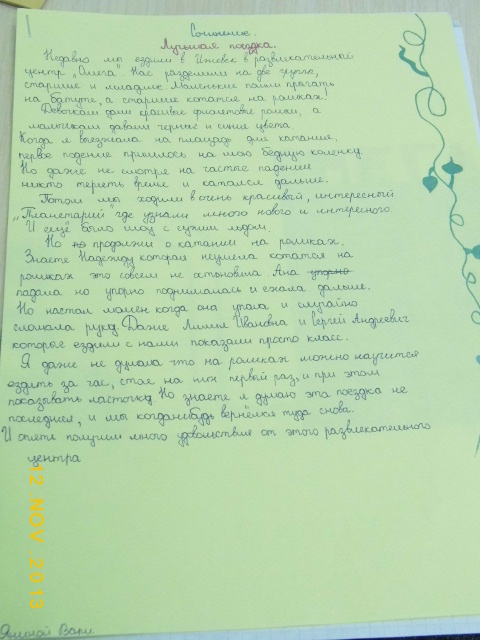 Сочинение.
Лучшая поездка.
Недавно мы ездили в Ижевск в развлекательный
центр „Омега". Нас разделили на две группы,
старшие и младшие. Маленькие пошли прыгать
на батуте, а старшие кататся на роликах!
Девочкам дали красивые фиолетовые ролики, а
мальчикам давали черные и синие цвета
Когда я выезжала на площадь для катания,
первое падение пришлось на мою бедную коленку.
Но даже не смотря на частые падения
никто терять время и катался дальше.
Потом мы ходили в очень красивый, интересный
„Планетарий" где узнали много нового и интересного.
И ещё было шоу с сухим льдом.
Но по продолжу о катании на роликах.
Знаете Надежду которая неумела кататся на
роликах это совсем не остоновила. Она упорно
падала но упорно поднималась и ехала дальше.
Но настал момен когда она упала и случайно
сломала руку. Даже Лилия Ивановна и Сергей Андреевич
которые ездили с нами показали просто класс.
Я даже не думала что на роликах можно научится
ездить за час, стоя на них первый раз, и при этом
показывать ласточку. Но знаете я думаю эта поездка не
последняя, и мы когданибудь вернёмся туда снова.
И опять получим много удовольствия от этого развлекательного
центра
12 NOV 2013
Вари